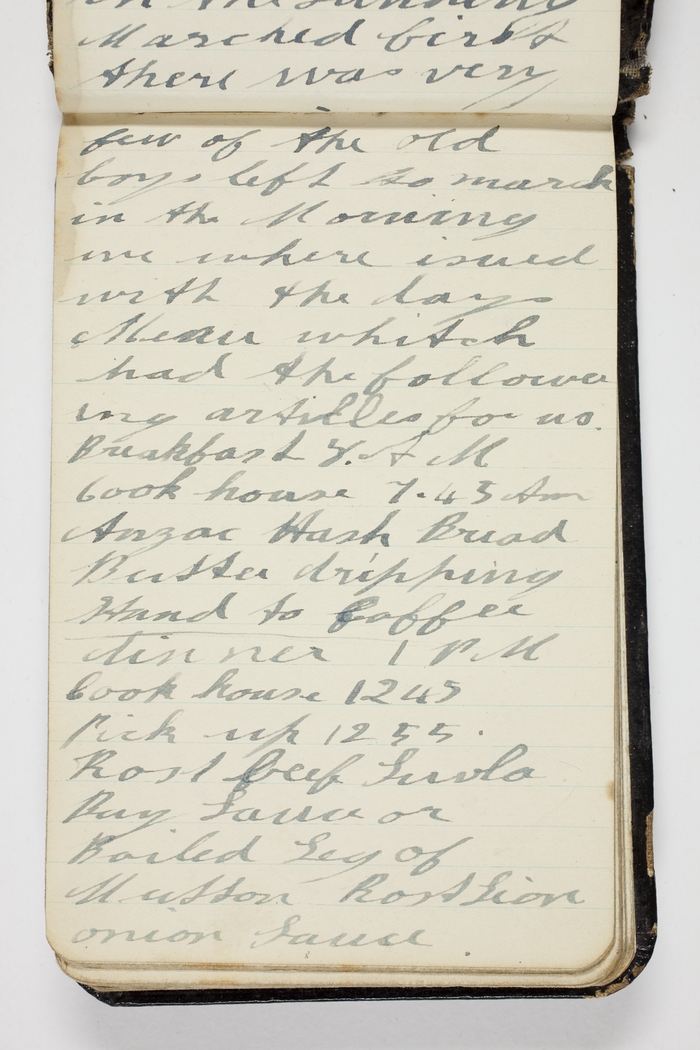 Marched first
there was very
few of the old
boys left to march
in the Morning
we where issued
with the days
Menu whitch
had the follow
ing articles for us.
Breakfast 8. A M
Cook house 7.45 Am
Anzac Hash Bread
Butter dripping
Hand to Coffee
dinner 1 P M
Cook house 1245
Pick up 1255.
Rost beef Suvla
Bay Sauce or
Boiled Leg of
Mutton Rost Lion
onion Sauce